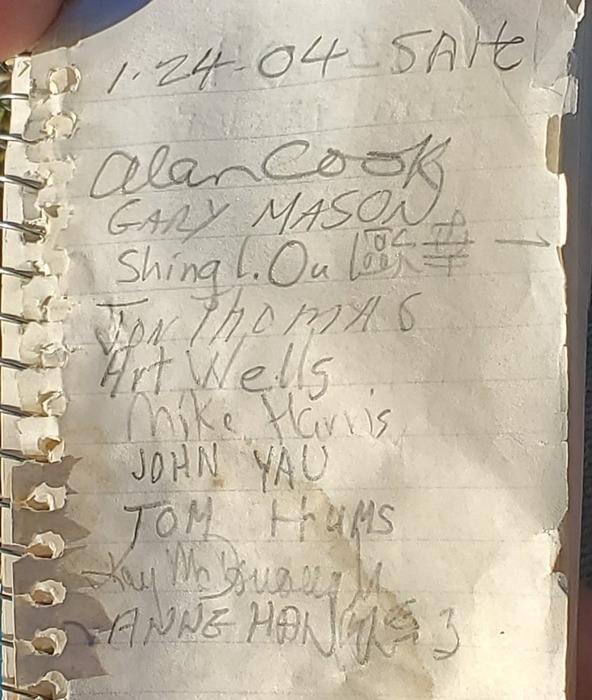 1-24-04 SAt
Alan Cook
GARY MASON
Shing L. Ou
Jon Thomas
Art Wells
Mike Harris
JOHN YAU
TOM
Kay
ANNE